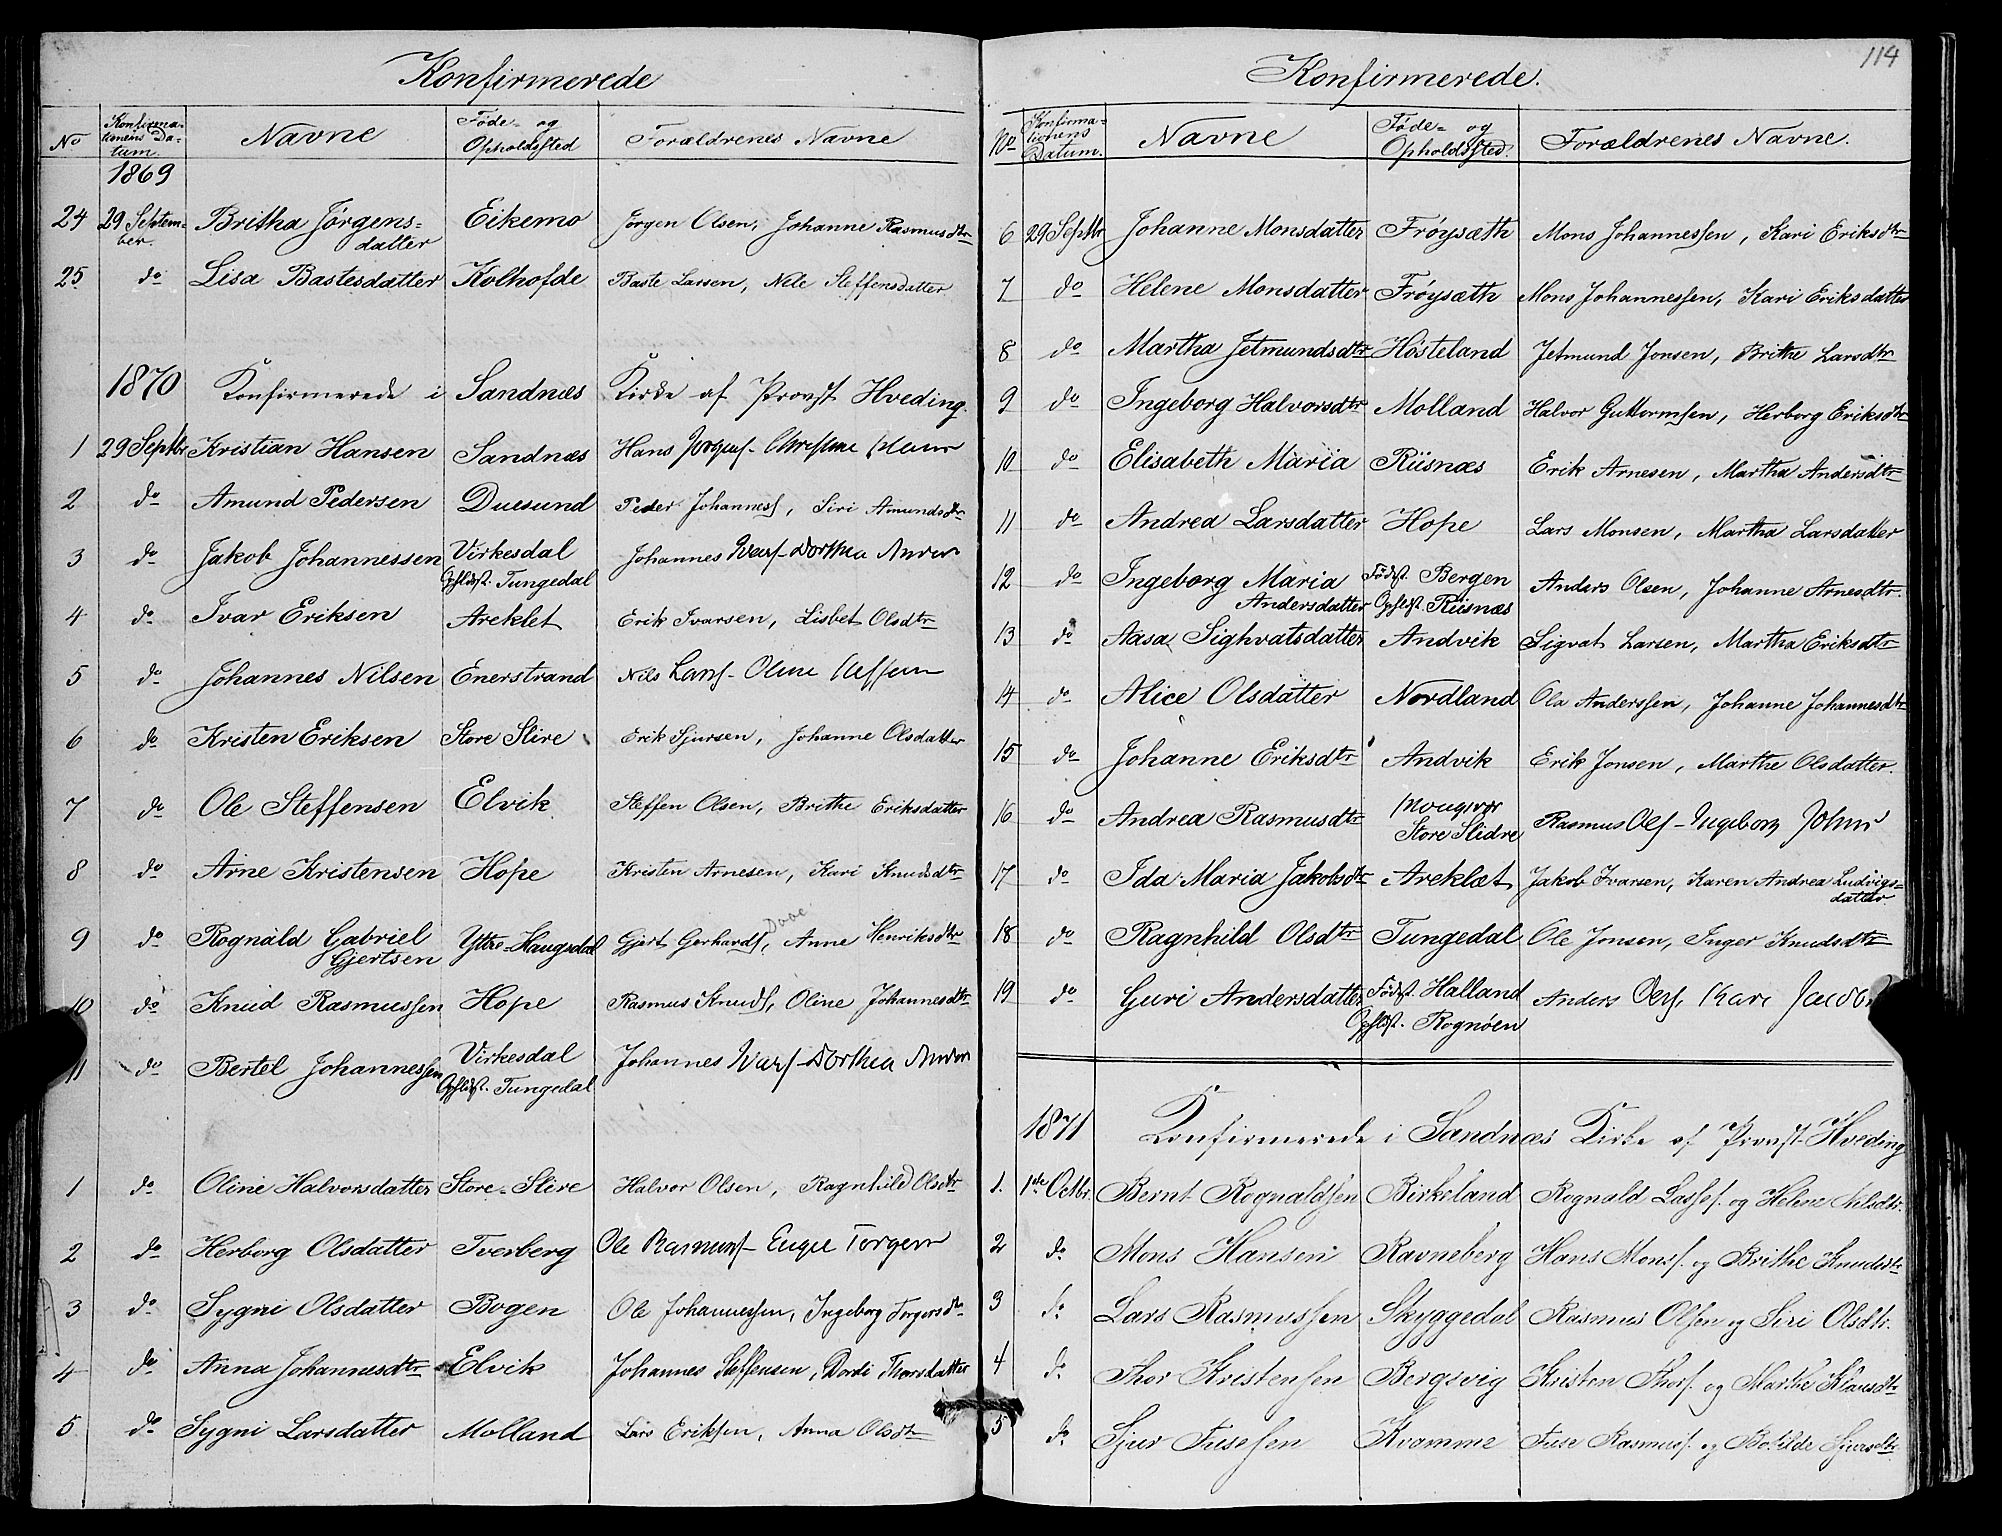 Konfirmerede
No Konfirmationens Datum Navne Føde- og Opholdssted Forældrenes Navne
1869
24 29 September. Britha Jørgensdatter Eikemo Jørgen Olsen, Johanne Rasmusdtr
25. do Lisa Bastesdatter Kolhofde Baste Larsen, Nele Steffensdatter
1870 Konfirmerede i Sandnæs Kirke af Provst Hveding.
1 29 Septbr Kristian Hansen Sandnæs Hans
2 do Amund Pedersen Duesund Peder Johanness, Siri Amundsdtr
3 do Jakob Johannessen Virkesdal Johannes Ivars- Dorthea Anders
Opholdst. Tungedal
4 do Ivar Eriksen Areklet Erik Ivarsen, Lisbet Olsdtr
5 do Johannes Nilsen Enerstrand Nils Larss- Oline
6 do Kristen Eriksen Store Slire Erik Sjursen, Johanne Olsdatter
7 do Ole Steffensen Elvik Steffen Olsen, Brithe Eriksdatter
8 do Arne Kristensen Hope Kristen Arnesen, Kari Knudsdtr
9 do Rognald Gabriel Gjertsen Yttre-Haugsdal Gjert Gerhards, Anne Henriksdtr
10 do Knud Rasmussen Hope Rasmus Knuds, Oline Johannesdtr
11 do Bertel Johannessen Virkesdal Johannes Ivars- Dorthea Anders
Opholdst. Tungedal
1 do Oline Halvorsdatter Store-Slire Halvor Olsen, Ragnhild Olsdtr
2 do Herborg Olsdatter Tverberg Ole Rasmuss-
3 do Sygni Olsdatter Bogen Ole Johannessen, Ingeborg Torgersdtr
4 do Anna Johannesdtr Elvik Johannes Steffensen, Dordi Thorsdatter
5 do Sygni Larsdatter Molland Lars Eriksen, Anna Olsdtr
114
Konfirmerede.
No Konfirmationens Datum. Navne Føde- og Opholdssted. Forældrenes Navne.
6 29 Septbr Johanne Monsdatter Frøysæth Mons Johannessen, Kari Eriksdtr
7 do Helene Monsdatter Frøysæth Mons Johannessen, Kari Eriksdatter
8 do Martha Jetmundsdtr Hösteland Jetmund Jonsen, Brithe Larsdtr
9 do Ingeborg Halvorsdtr Molland Halvor Guttormsen, Herborg Eriksdtr
10 do Elisabeth Maria Riisnæs Erik Arnesen, Martha Andersdtr
11 do Andrea Larsdatter Hope Lars Monsen, Martha Larsdatter
12 do Ingeborg Maria Andersdatter Fødst. Bergen Anders Olsen, Johanne Arnesdtr.
Opholdst. Riisnæs
13 do Aasa Sighvatsdatter Andvik Sigvat Larsen, Martha Eriksdtr
14 do Alice Olsdatter Nordland Ola Anderssen, Johanne Johannesdtr
15 do Johanne Eriksdtr Andvik Erik Jonsen, Marthe Olsdatter.
16 do Andrea Rasmusdtr Store Slidre Rasmus Ols- Ingeborg Johns
17 do Ida Maria Jakobsdtr Areklæt Jakob Ivarsen, Karen Andrea Ludvigsdatter
18 do Ragnhild Olsdtr Tungedal Ole Jonsen, Inger Knudsdtr
19 do Guri Andersdatter Fødst. Halland Anders Kari
Opholdst. Rognøen
1871 Konfirmerede i Sandnæs Kirke af Provst Hveding
1. 1ste Octbr. Bernt Rognaldsen Birkeland Rognald Lasses. og Helene Nilsdtr.
2 do Mons Hansen Ravneberg Hans Mons. og Brithe Knudsdtr
3 do Lars Rasmussen Skyggedal Rasmus Olsen og Siri Olsdtr.
4 do Thor Kristensen Bergsvig Kristen Thors. og Marthe Klausdtr
5 do Sjur Tusesen Kvamme Tuse Rasmuss. og Botilde Sjursdtr